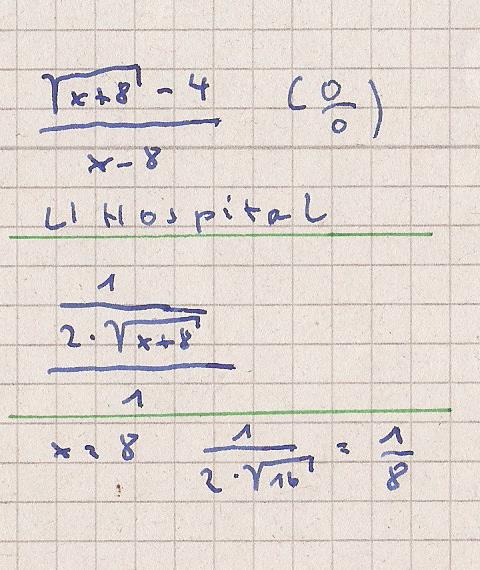 √(x+8) - 4 / x-8 (0/0)
L'Hospital
1 / 2·√(x+8)
/ 1
x = 8 1 / 2·√16 = 1/8